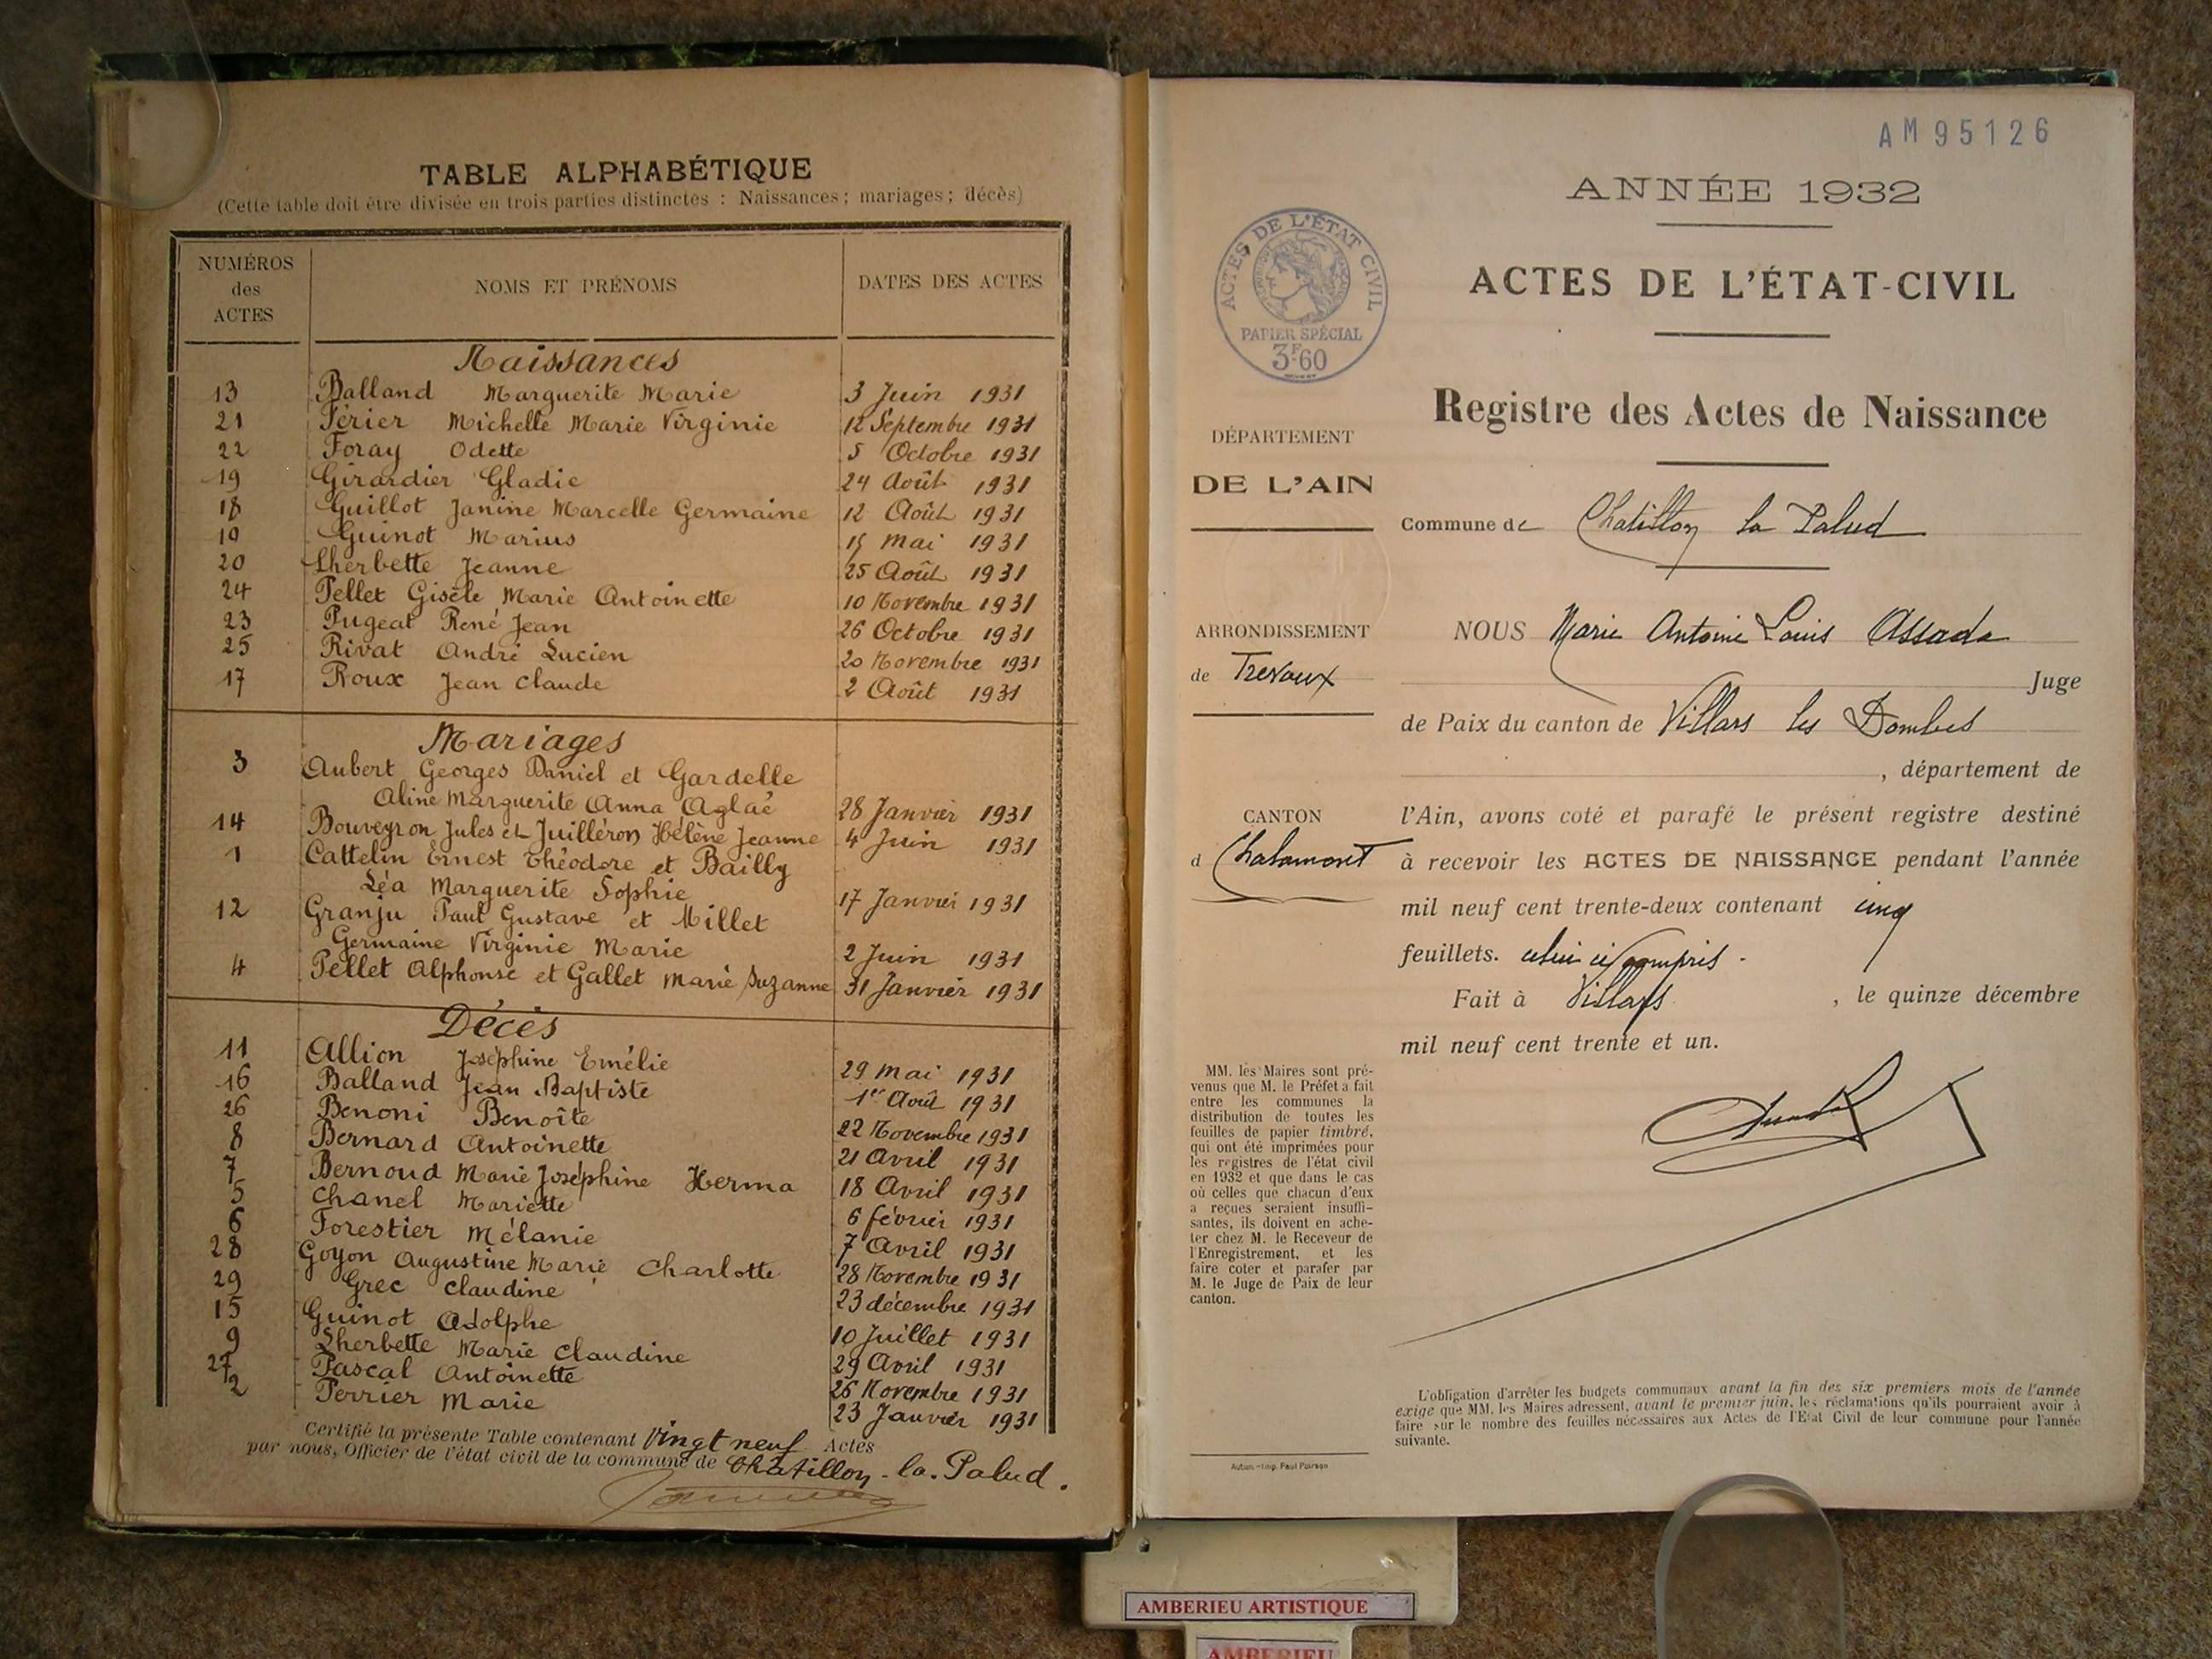 TABLE ALPHABÉTIQUE
(Cette table doit être divisée en trois parties distinctes : Naissances ; mariages ; décès)
NUMÉROS des ACTES NOMS ET PRÉNOMS DATES DES ACTES
Naissances
13 Balland Marguerite Marie 3 Juin 1931
21 Férier Michelle Marie Virginie 12 Septembre 1931
22 Foray Odette 5 Octobre 1931
19 Girardier Gladie 24 Août 1931
18 Guillot Janine Marcelle Germaine 12 Août 1931
10 Guinot Marius 15 Mai 1931
20 Lherbette Jeanne 25 Août 1931
24 Pellet Gisèle Marie Antoinette 10 Novembre 1931
23 Pugeat René Jean 26 Octobre 1931
25 Rivat André Lucien 20 Novembre 1931
17 Roux Jean Claude 2 Août 1931
Mariages
3 Aubert Georges Daniel et Gardelle
Aline Marguerite Anna Aglaé 28 Janvier 1931
14 Bouveyron Jules et Juilléron Hélène Jeanne 4 Juin 1931
1 Cattelin Ernest Théodore et Bailly
Léa Marguerite Sophie 17 Janvier 1931
12 Granju Paul Gustave et Millet
Germaine Virginie Marie 2 Juin 1931
4 Pellet Alphonse et Gallet Marie Suzanne 31 Janvier 1931
Décès
11 Allion Joséphine Emélie 29 Mai 1931
16 Balland Jean Baptiste 1er Août 1931
26 Benoni Benoîte 22 Novembre 1931
8 Bernard Antoinette 21 Avril 1931
7 Bernoud Marie Joséphine Herma 18 Avril 1931
5 Chanel Mariette 6 février 1931
6 Forestier Mélanie 7 Avril 1931
28 Goyon Augustine Marie Charlotte 28 Novembre 1931
29 Grec Claudine 23 décembre 1931
15 Guinot Adolphe 10 Juillet 1931
9 Lherbette Marie Claudine 29 Avril 1931
27 Pascal Antoinette 26 Novembre 1931
2 Perrier Marie 23 Janvier 1931
Certifié la présente Table contenant Vingt neuf Actes
par nous, Officier de l'état civil de la commune de Chatillon-la-Palud.
AM95126
ANNÉE 1932
ACTES DE L'ÉTAT CIVIL
PAPIER SPÉCIAL
3F60
ACTES DE L'ÉTAT-CIVIL
Registre des Actes de Naissance
DÉPARTEMENT
DE L'AIN
Commune de Chatillon la Palud
ARRONDISSEMENT
de Trevoux
NOUS Marie Antoine Louis Assada
Juge
de Paix du canton de Villars les Dombes
, département de
CANTON
d Chalamont
l'Ain, avons coté et parafé le présent registre destiné
à recevoir les ACTES DE NAISSANCE pendant l'année
mil neuf cent trente-deux contenant cinq
feuillets. celui ci compris.
Fait à Villars , le quinze décembre
mil neuf cent trente et un.
MM. les Maires sont pré-
venus que M. le Préfet a fait
entre les communes la
distribution de toutes les
feuilles de papier timbré,
qui ont été imprimées pour
les registres de l'état civil
en 1932 et que dans le cas
où celles que chacun d'eux
a reçues seraient insuffi-
santes, ils doivent en ache-
ter chez M. le Receveur de
l'Enregistrement, et les
faire coter et parafer par
M. le Juge de Paix de leur
canton.
L'obligation d'arrêter les budgets communaux avant la fin des six premiers mois de l'année
exige que MM. les Maires adressent, avant le premier juin, les réclamations qu'ils pourraient avoir à
faire sur le nombre des feuilles nécessaires aux Actes de l'Etat Civil de leur commune pour l'année
suivante.
Autun.-Imp. Paul Poirson
AMBERIEU ARTISTIQUE
AMBERIEU